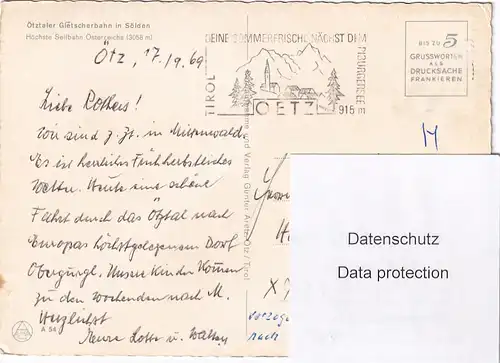 Ötztaler Gletscherbahn in Sölden
Höchste Seilbahn Österreichs (3056 m)
Ötz, 17./9.69
DEINE SOMMERFRISCHE NÄCHST DEM
PIBURGERSEE
TIROL
OETZ
915 m
BIS ZU 5
GRUSSWORTEN
ALS
DRUCKSACHE
FRANKIEREN
Liebe
Wir sind z. Zt. in Mittenwald.
Es ist herrliches Frühherbstliches
Wetter. Heute eine schöne
Fahrt durch das Ötztal nach
Europas höchstgelegenem Dorf
Obergurgl. Unsere Kinder kommen
zu den Wochenenden nach M.
Herzlichst
Lotte u.
und Verlag Günter Ötz / Tirol
Datenschutz
Data protection
nach